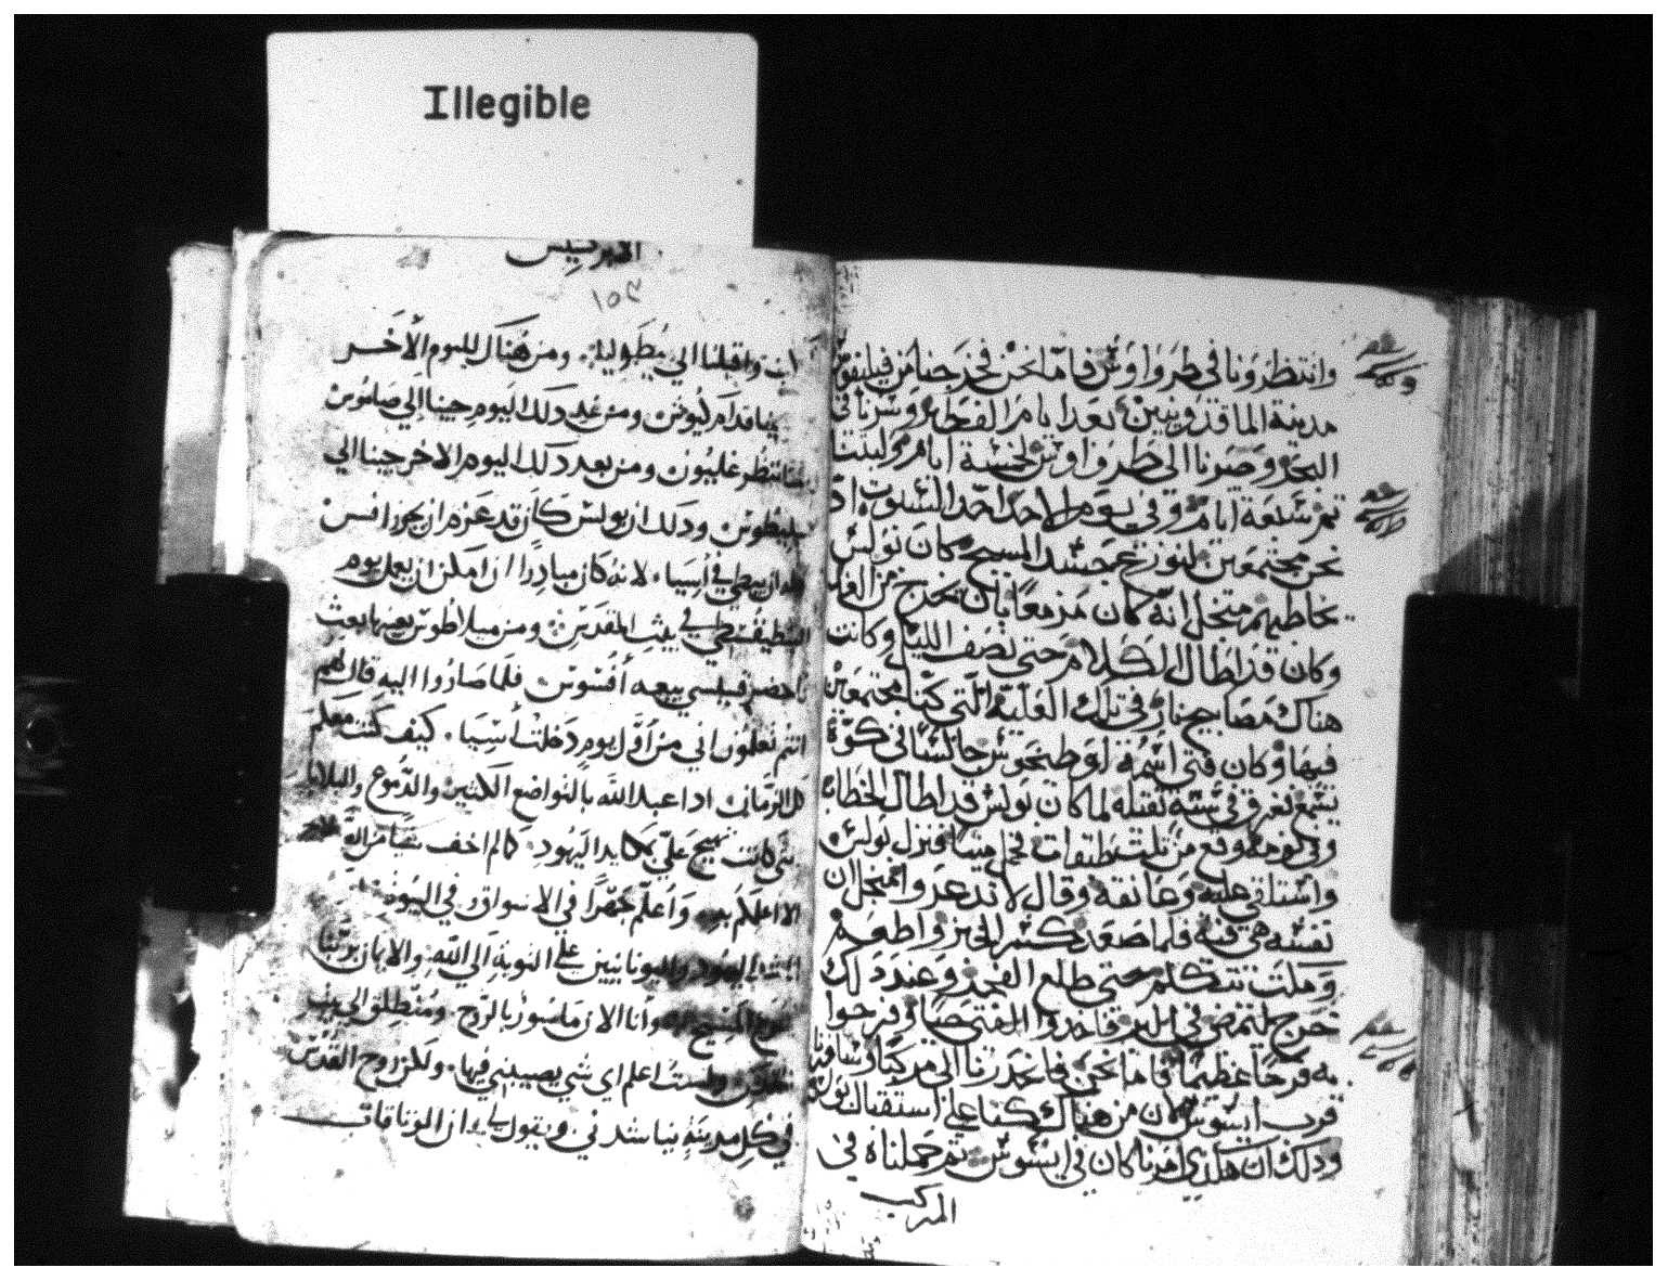 Illegible
وانتظرونا في طرواوس فاما نحن فخرجنا من فيلبفوس
مدينة الماقدونيين بعد ايام الفطير وسرنا في
البحر وصرنا الى طرواوس لخمسة ايام ولبثنا
ثم سبعة ايام وفي يوم الاحد احد السبوت اذ
نحن مجتمعين لنوزع جسد المسيح كان بولس
يخاطبهم متجل انه كان مزمعا بان يخرج من الغد
وكان قد اطال الكلام حتى نصف الليل وكانت
هناك مصابيح نار في تلك العلية التي كنا مجتمعين
فيها وكان فتى اسمه اوطيخوس جالسا في كوة
يسمع فغرق في سنه ثقيله لما كان بولس قد اطال الخطاب
وفي نومه وقع من ثلث طبقات فحمل ميتا فنزل بولس
واستلقى عليه وعانقه وقال لا تدعروا متجل ان
نفسه هي فيه فلما صعد كسر الخبز واطعم
ومكث يتكلم حتى طلع الفجر وعند ذلك
خرج ليمضي في البر فاخذوا الفتى حيا وفرحوا
به فرحا عظيما فاما نحن فانحدرنا الى مركب وسافرنا
قرب ايسوس لان من هناك كنا على استقبال بولس
وذلك ان هكذي امرنا كان في ايسوس ثم حملناه في
المركب
الابركسيس
١٥٣
واقبلنا الي ميطوليا. ومن هناك لليوم الاخر
قدام كيوس. ومن غد ذلك اليوم جينا الي صاموس
طرغليون ومن بعد ذلك اليوم الاخر جينا الي
وذلك ان بولس كان قد عزم ان يجوز افسس
ان يبطي في اسيا. لانه كان مبادرا ان امكن ان يعمل يوم
البنطيقسطي في بيت المقدس. ومن ميلاطوس بعينها بعث
قسيسي بيعه افسوس. فلما صاروا اليه قال لهم
انتم تعلمون اني من اول يوم دخلت اسيا. كيف كنت معكم
كل الزمان. اذا عبد الله بالتواضع الكثير والدموع والبلايا
التي كانت تهيج علي بمكايد اليهود. كما لم اخف شيا من
الا اعلمكم به. واعلم جهرا في الاسواق وفي البيوت
اليهود واليونانيين على التوبه الي الله. والايمان بربنا
يسوع المسيح. وانا الان ماسور بالروح. ومنطلق الي بيت
المقدس. ولست اعلم اي شي يصيبني فيها. ولكن روح القدس
في كل مدينة يناشدني ويقول لي ان الوثاقات